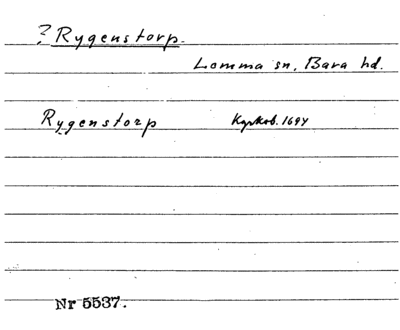 ? Rygenstorp.
Lomma sn, Bara hd.
Rygenstorp Kyrkob. 1694
Nr 5537.